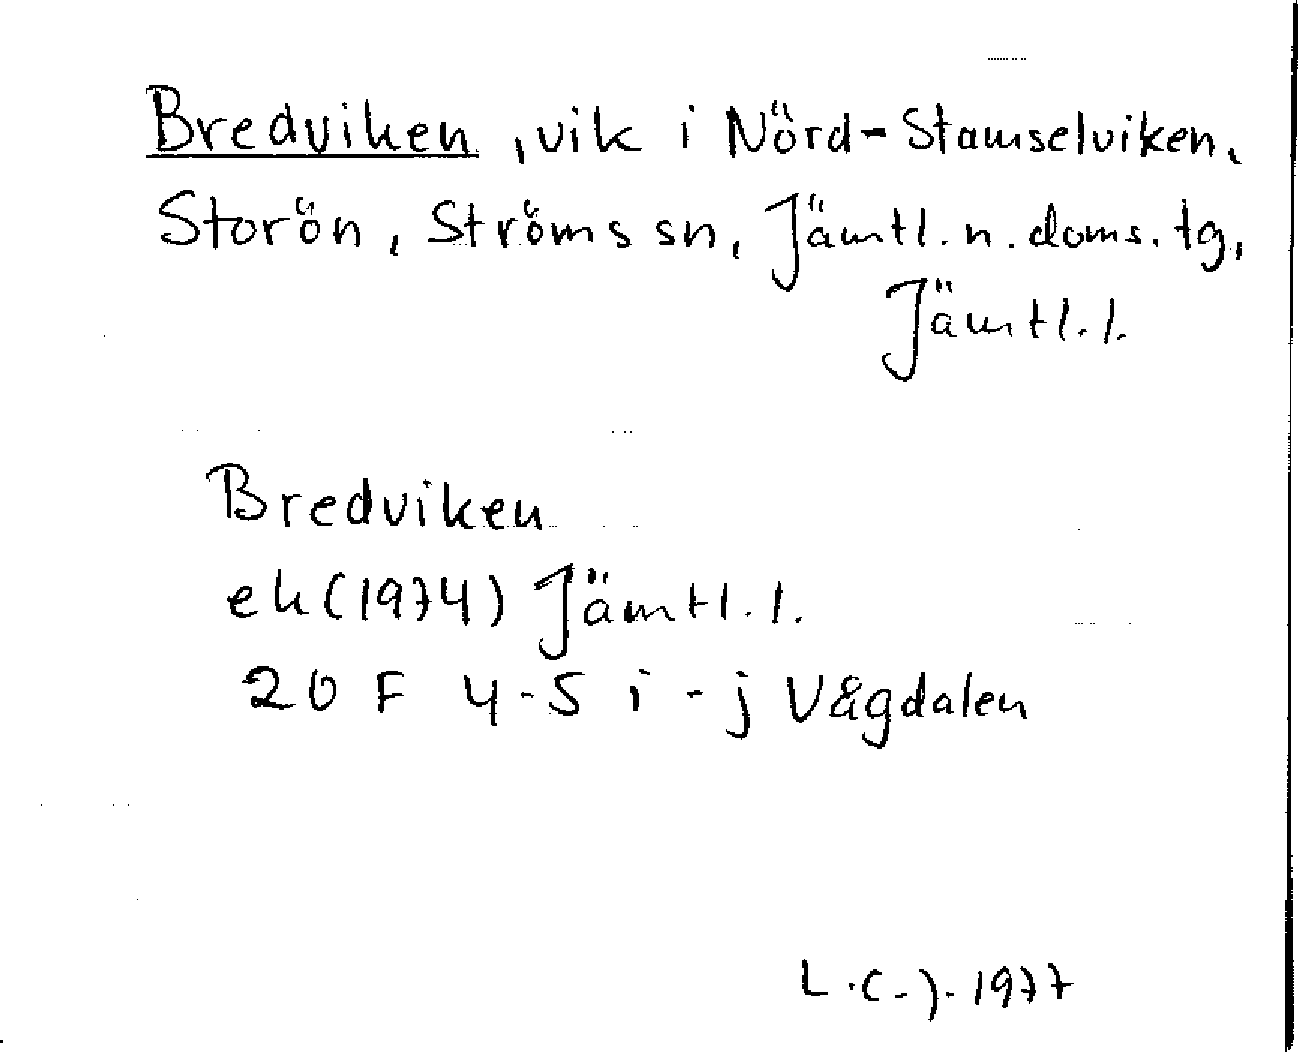 Bredviken, vik i Nörd-Stamselviken,
Storön, Ströms sn, Jämtl. n. doms. tg,
Jämtl. l.
Bredviken
ek (1974) Jämtl. l.
20 F 4-5 i - j Vågdalen
L.C.J. 1977